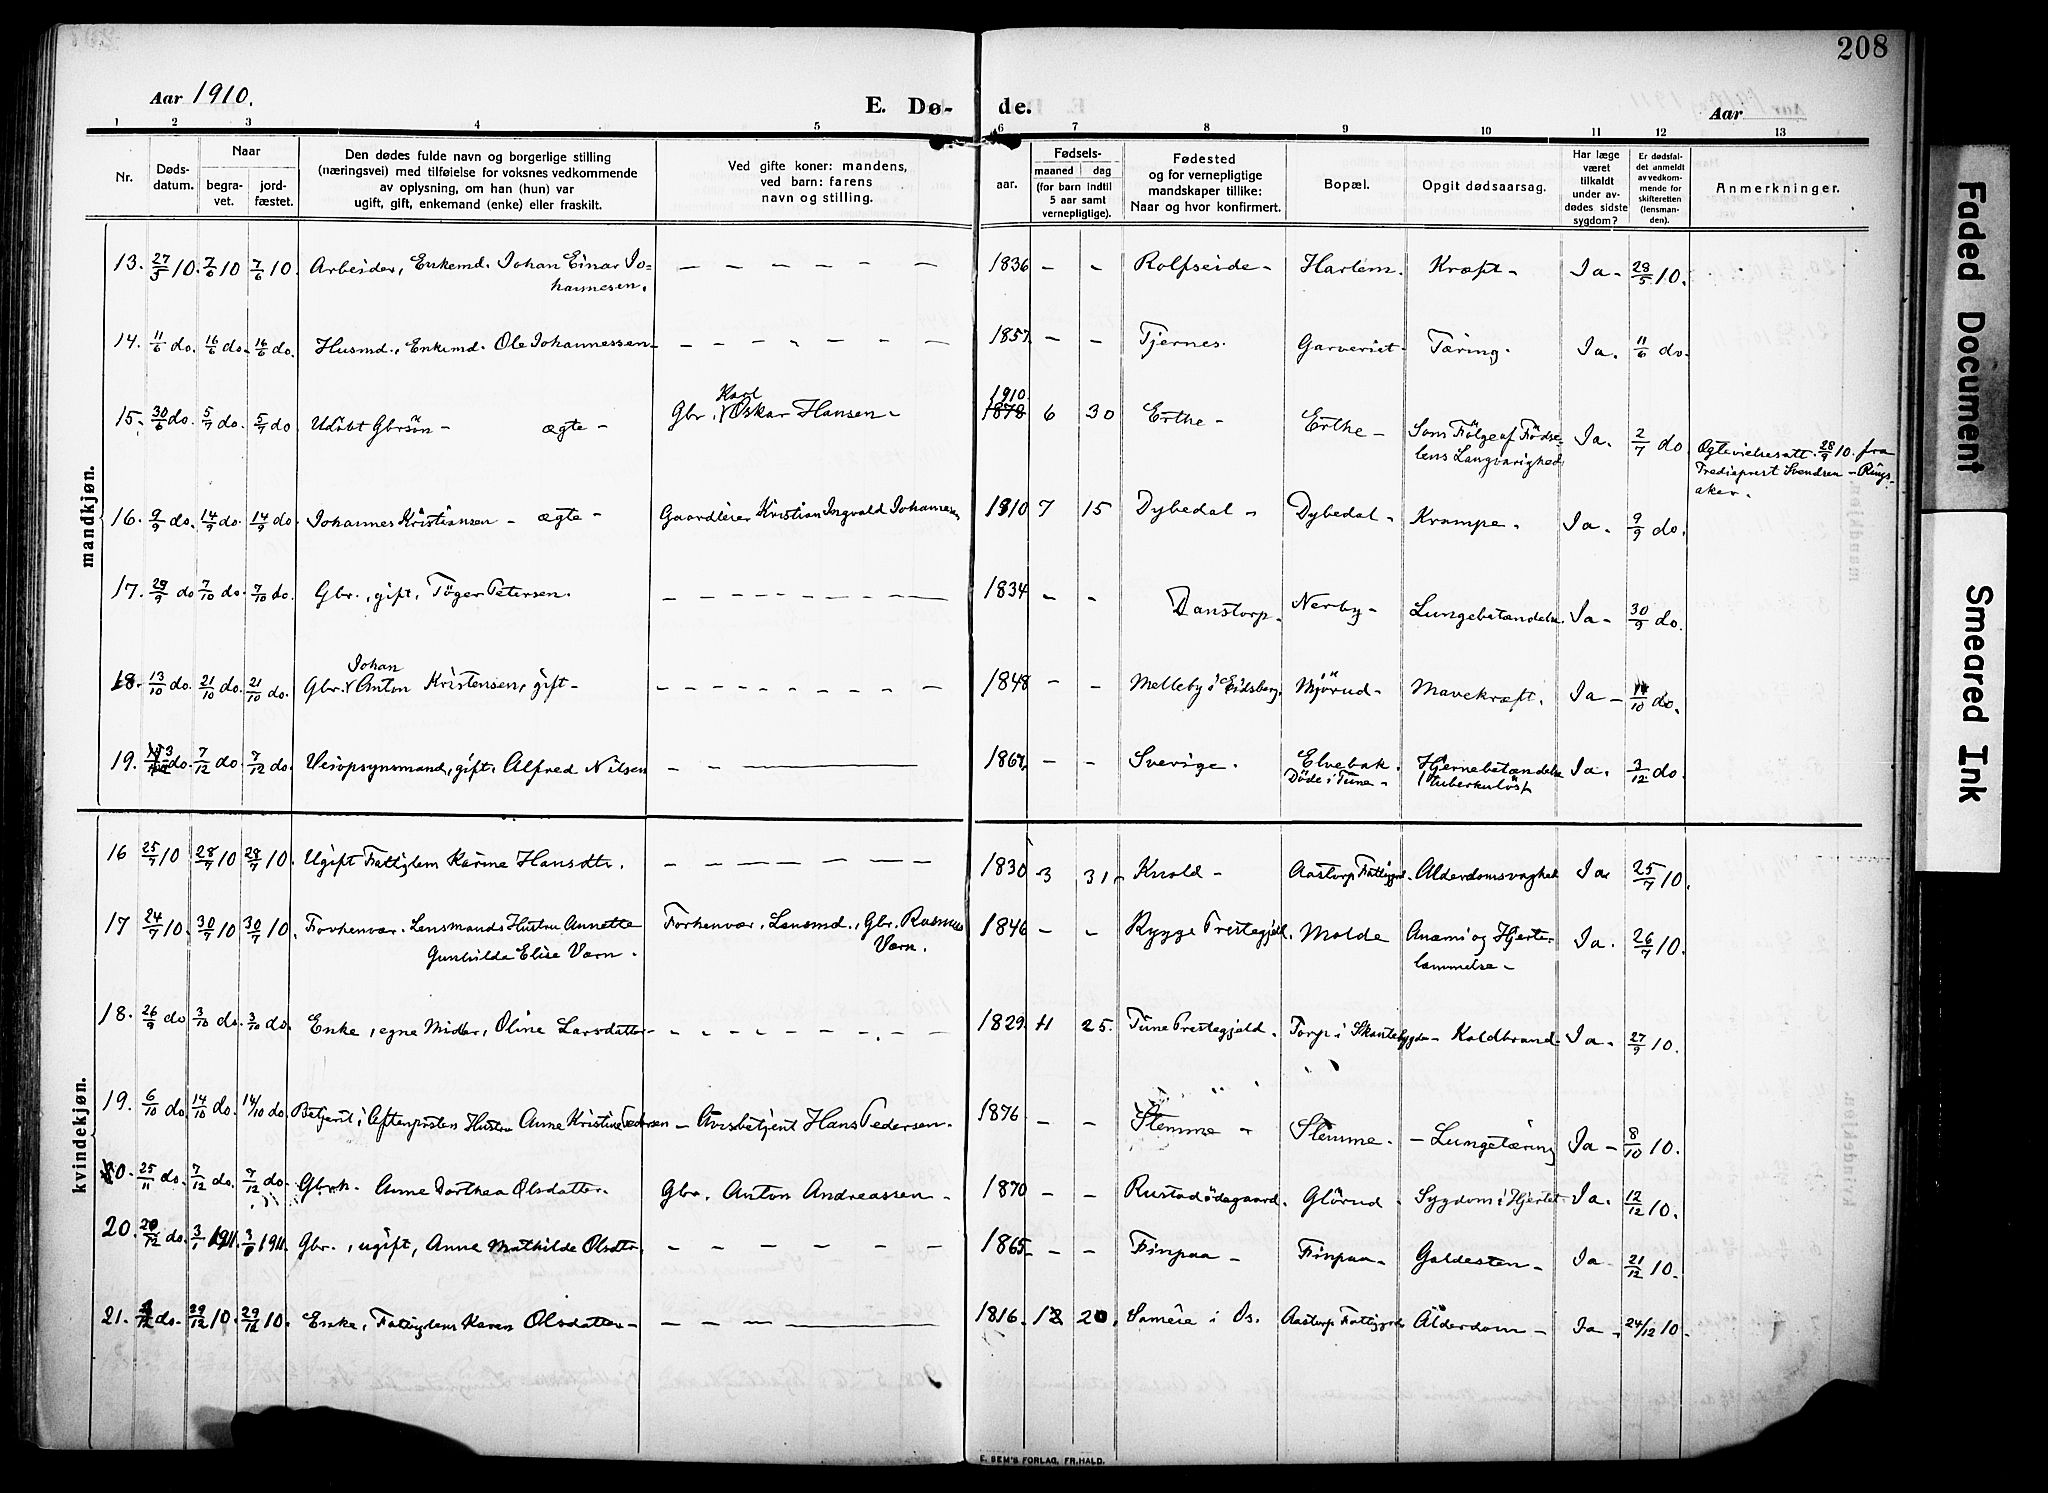 208
Aar 1910. E. Dø- de. Aar
1 2 3 4 5 6 7 8 9 10 11 12 13
Nr.
Døds-
datum.
Naar
begra-
vet.
jord-
fæstet.
Den dødes fulde navn og borgerlige stilling
(næringsvei) med tilføielse for voksnes vedkommende
av oplysning, om han (hun) var
ugift, gift, enkemand (enke) eller fraskilt.
Ved gifte koner: mandens,
ved barn: farens
navn og stilling.
aar.
Fødsels-
maaned dag
(for barn indtil
5 aar samt
vernepligtige).
Fødested
og for vernepligtige
mandskaper tillike:
Naar og hvor konfirmert.
Bopæl.
Opgit dødsaarsag.
Har læge
været
tilkaldt
under av-
dødes sidste
sygdom?
Er dødsfal-
det anmeldt
av vedkom-
mende for
skifteretten
(lensman-
den).
Anmerkninger.
mandkjøn.
13. 27/5 10. 7/6 10 7/6 10. Arbeider, Enkemd. Johan Einar Jo-
hannesen. 1836 - - Rolfseide - Harlem. Kræft - Ja - 28/5 10.
14. 11/6 do. 16/6 do. 16/6 do. Husmd., Enkemd. Ole Johannessen - 1857 - - Tjernes. Garveriet. Tæring. Ja. 11/6 do.
15. 30/6 do. 5/7 do. 5/7 do Udöbt Gbrsön - ægte - Gbr. Karl Oskar Hansen - 1910. 1878 6 30 Erthe - Erthe - Som Fölge af Födse-
lens Langvarighed Ja. 2/7 do Ogtevielsesatt. 28/9 10. fra
Trediaprest Svendsen - Rings-
aker.
16. 9/9 do. 14/9 do. 14/9 do. Johannes Kristiansen - ægte - Gaardleier Kristian Ingvald Johannesen 1910 7 15 Dybedal - Dybedal - Krampe. Ja. 9/9 do.
17. 29/9 do 7/10 do. 7/10 do. Gbr., gift, Töger Petersen. 1834 - - Danstorp. Nerby - Lungebetændelse. Ja - 30/9 do.
18. 13/10 do. 21/10 do. 21/10 do. Gbr. Johan Anton Kristensen, gift - 1848 - - Melleby i Eidsberg. Mjörud - Mavekræft. Ja - /10 do.
19. do. 7/12 do. 7/12 do. Veiopsynsmand, gift. Alfred Nilsen 1867 - - Sverige. Elvebak.
Döde i Tune - Hjernebetændelse
(tuberkulöst Ja. 3/12 do.
kvindekjøn.
16 25/7 10 28/7 10 28/7 10. Ugift Fattiglem Karine Hansdtr. 1830 3 31 Knold - Aastorp Fattiggrd. Alderdomsvaghed Ja 25/7 10.
17 24/7 10. 30/7 10 30/7 10. Forhenvær. Lensmands Hustru Annette
Gunhilda Elise Værn. Forhenvær. Lensmd., Gbr. Rasmus
Værn. 1846 - - Rygge Prestegjeld. Molde Anæmi og Hjerte-
lammelse - Ja. 26/7 10.
18. 26/9 do 3/10 do. 3/10 do. Enke, egne Midler, Oline Larsdatter - 1829. 4 25. Tune Prestegjeld. Torp i Skautebygden - Koldbrand - Ja. 27/9 10.
19. 6/10 do 14/10 do. 14/10 do. Betjent i Aftenposten Hustru Anne Kristine Pedersen - Avisbetjent Hans Pedersen. 1876 - - Stemme - Stemme. - Lungetæring Ja - 8/10 10.
0. 25/11 do. 7/12 do. 7/12 do. Gbrk. Anne Dorthea Olsdatter. Gbr. Anton Andreassen - 1870 - - Rustadödegaard. Glörud - Sygdom i Hjertet. Ja. 12/12 10.
20. 20/12 do. 3/1 1911. 3/1 1911. Gbr., ugift, Anne Mathilde Olsdtr. 1865 - - Finpaa - Finpaa - Galdesten - Ja - 21/12 10.
21. do. 29/12 10. 29/12 10. Enke, Fattiglem Karen Olsdatter - 1816. 12 20. i Os. Aastorp Fattiggrd. Alderdom - Ja - 24/12 10.
E. SEM'S FORLAG, FR.HALD.
Faded Document
Smeared Ink